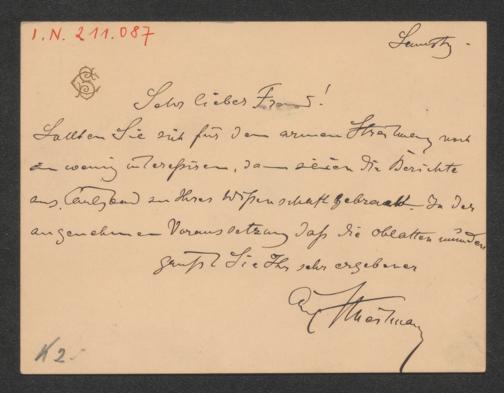 I.N. 211.087
Samstag.
Sehr lieber Freund!
Sollten Sie sich für den armen Strassmann noch
zu wenig interessiren, dann seien die Berichte
aus Carlsbad zu Ihrer Wissenschaft gebracht. In der
angenehmen Voraussetzung daß die Oblatten munden
grüßt Sie Ihr sehr ergebener
K 2.